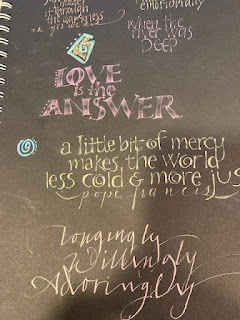 through
the darkness
emotionally
when the
river was
DEEP
LOVE
is the
ANSWER
a little bit of mercy
makes the world
less cold & more jus
pope francis
Longingly
Willingly
Adoringly